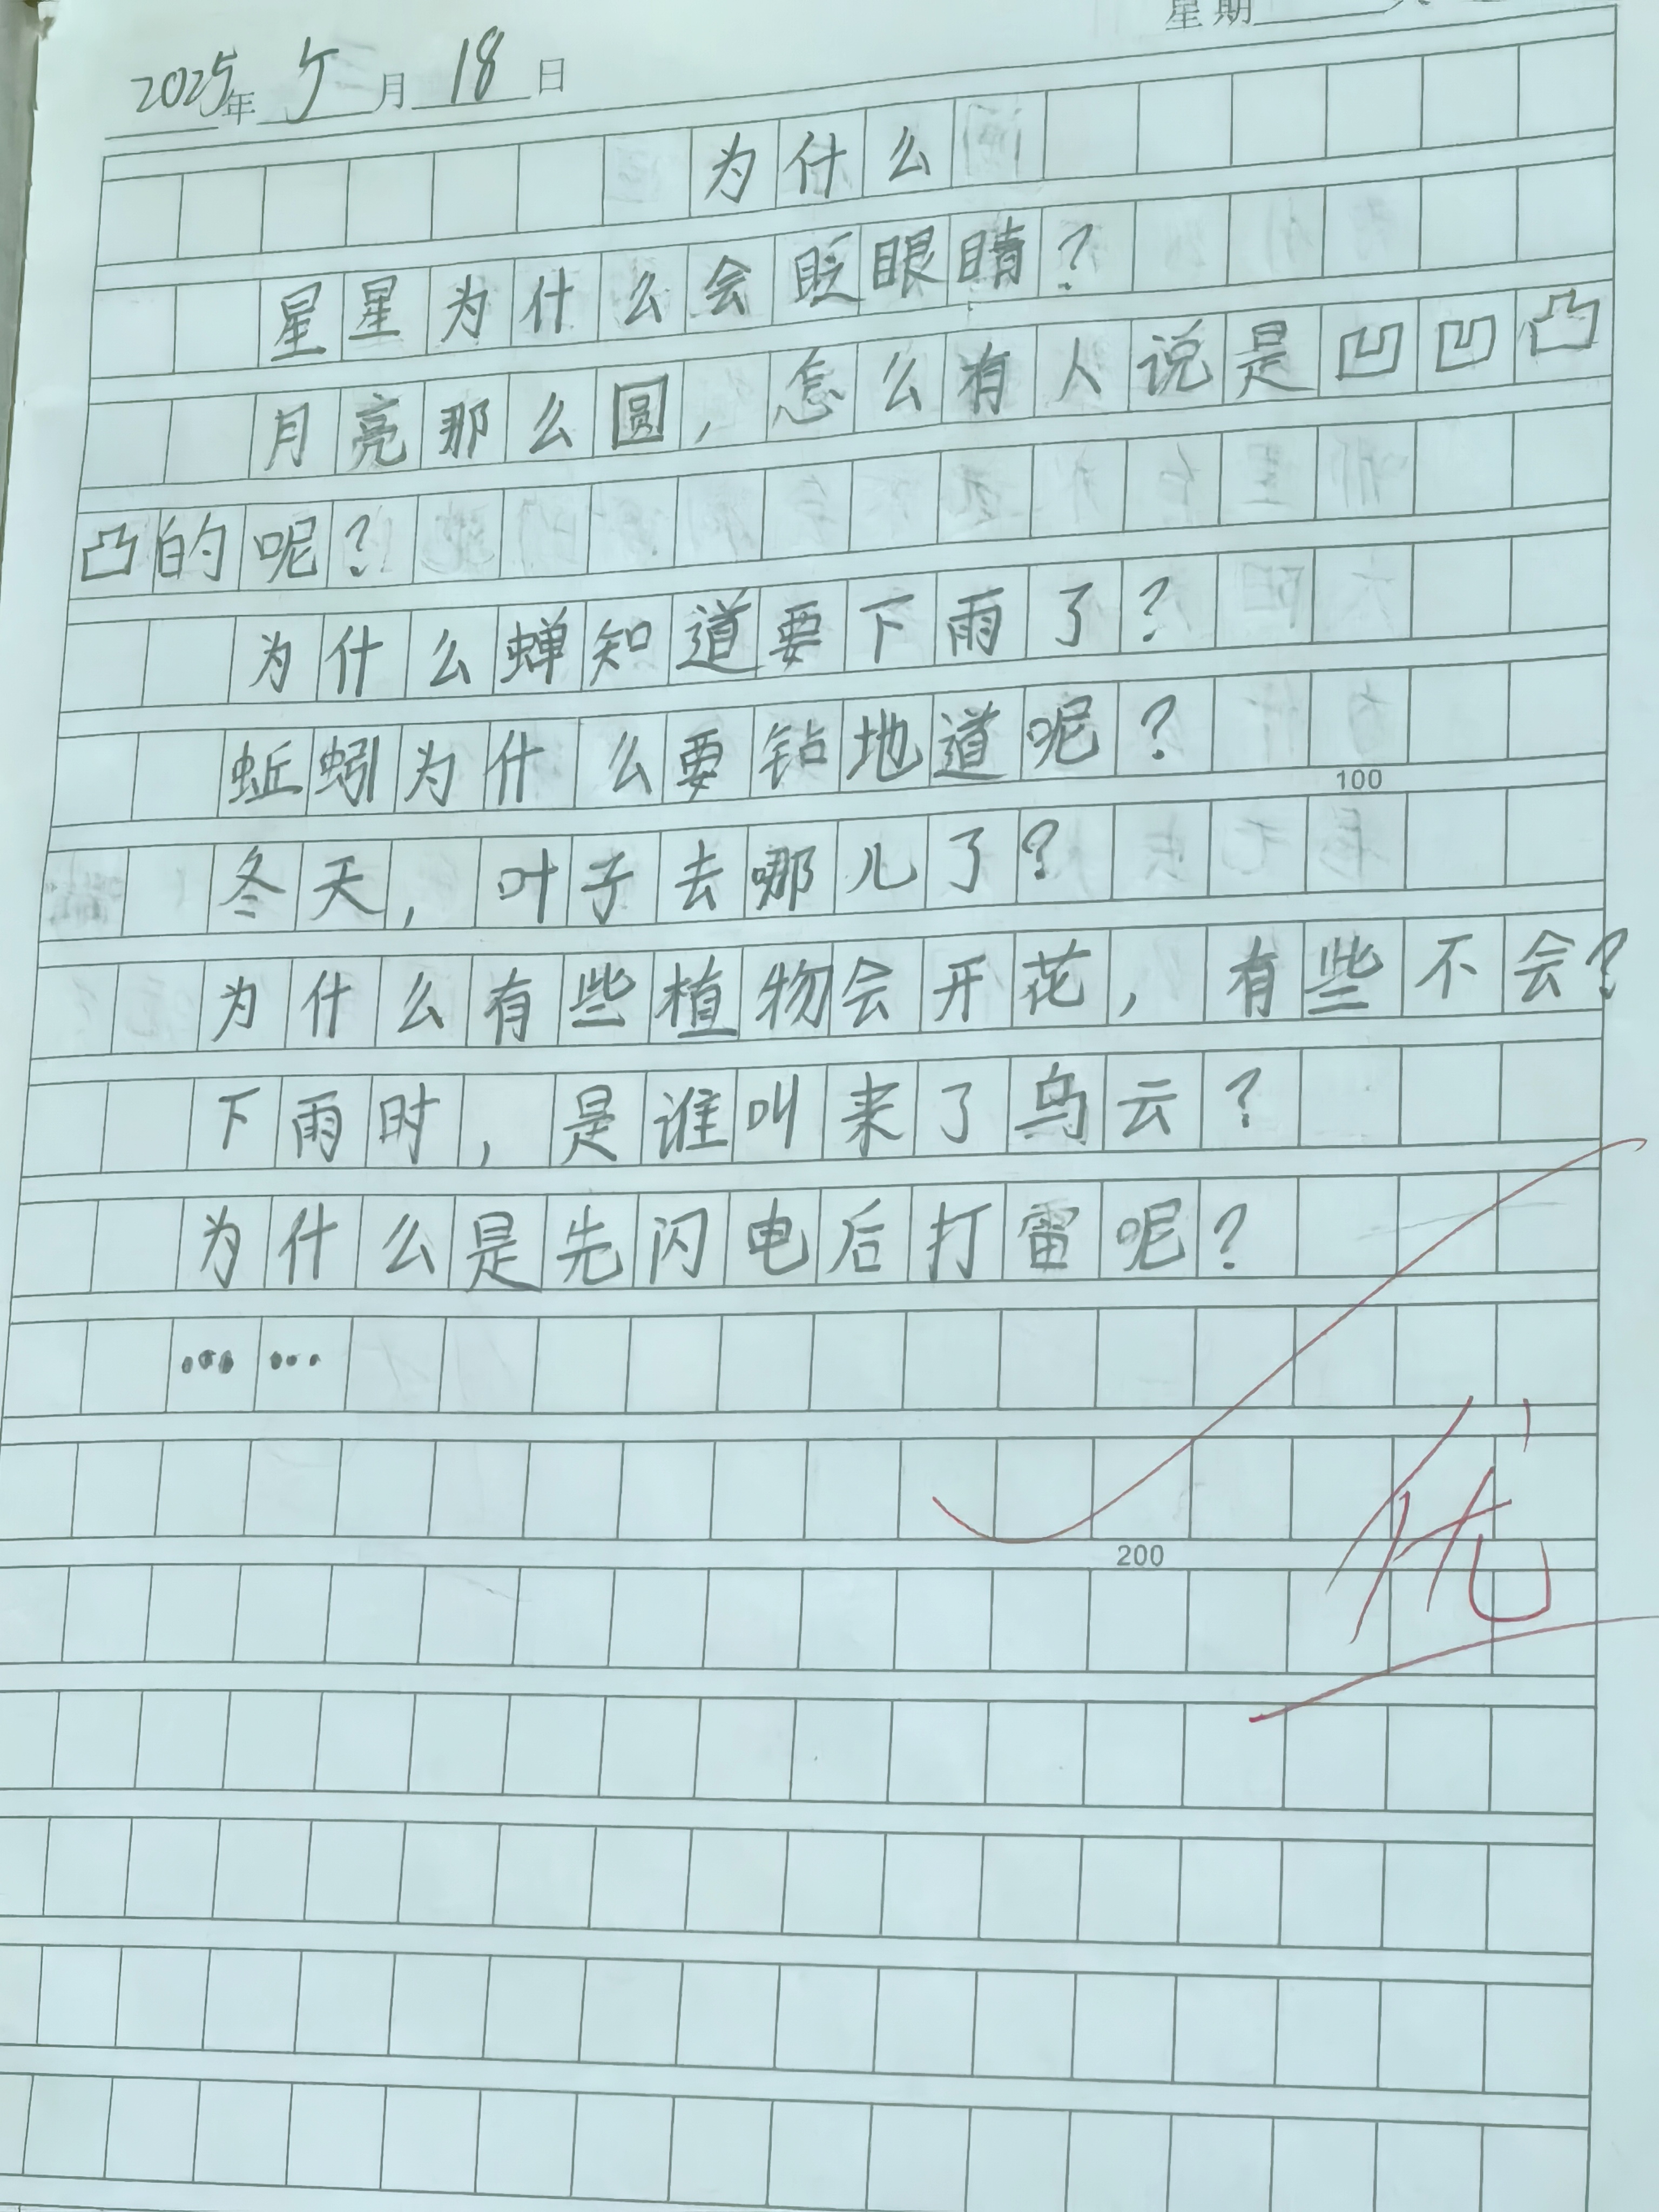 星期
2025年 5月 18日
为什么
星星为什么会眨眼睛？
月亮那么圆，怎么有人说是凹凹凸
凸的呢？
为什么蝉知道要下雨了？
蚯蚓为什么要钻地道呢？
100
冬天，叶子去哪儿了？
为什么有些植物会开花，有些不会？
下雨时，是谁叫来了乌云？
为什么是先闪电后打雷呢？
……
200
优